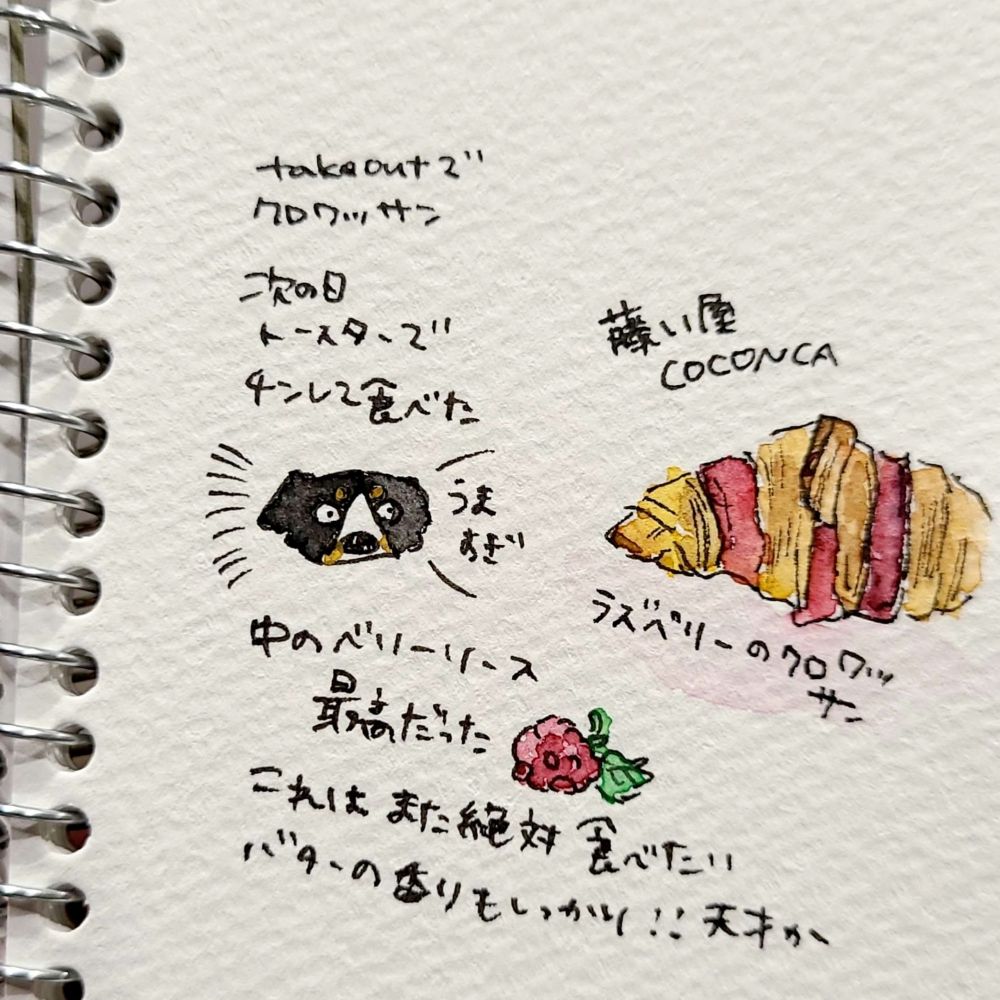 takeoutで
クロワッサン
次の日
トースターで
チンして食べた
うま
すぎ
中のベリーソース
最高だった
これはまた絶対食べたい
バターの香りもしっかり!!天才か
藤い屋
COCONCA
ラズベリーのクロワッ
サン